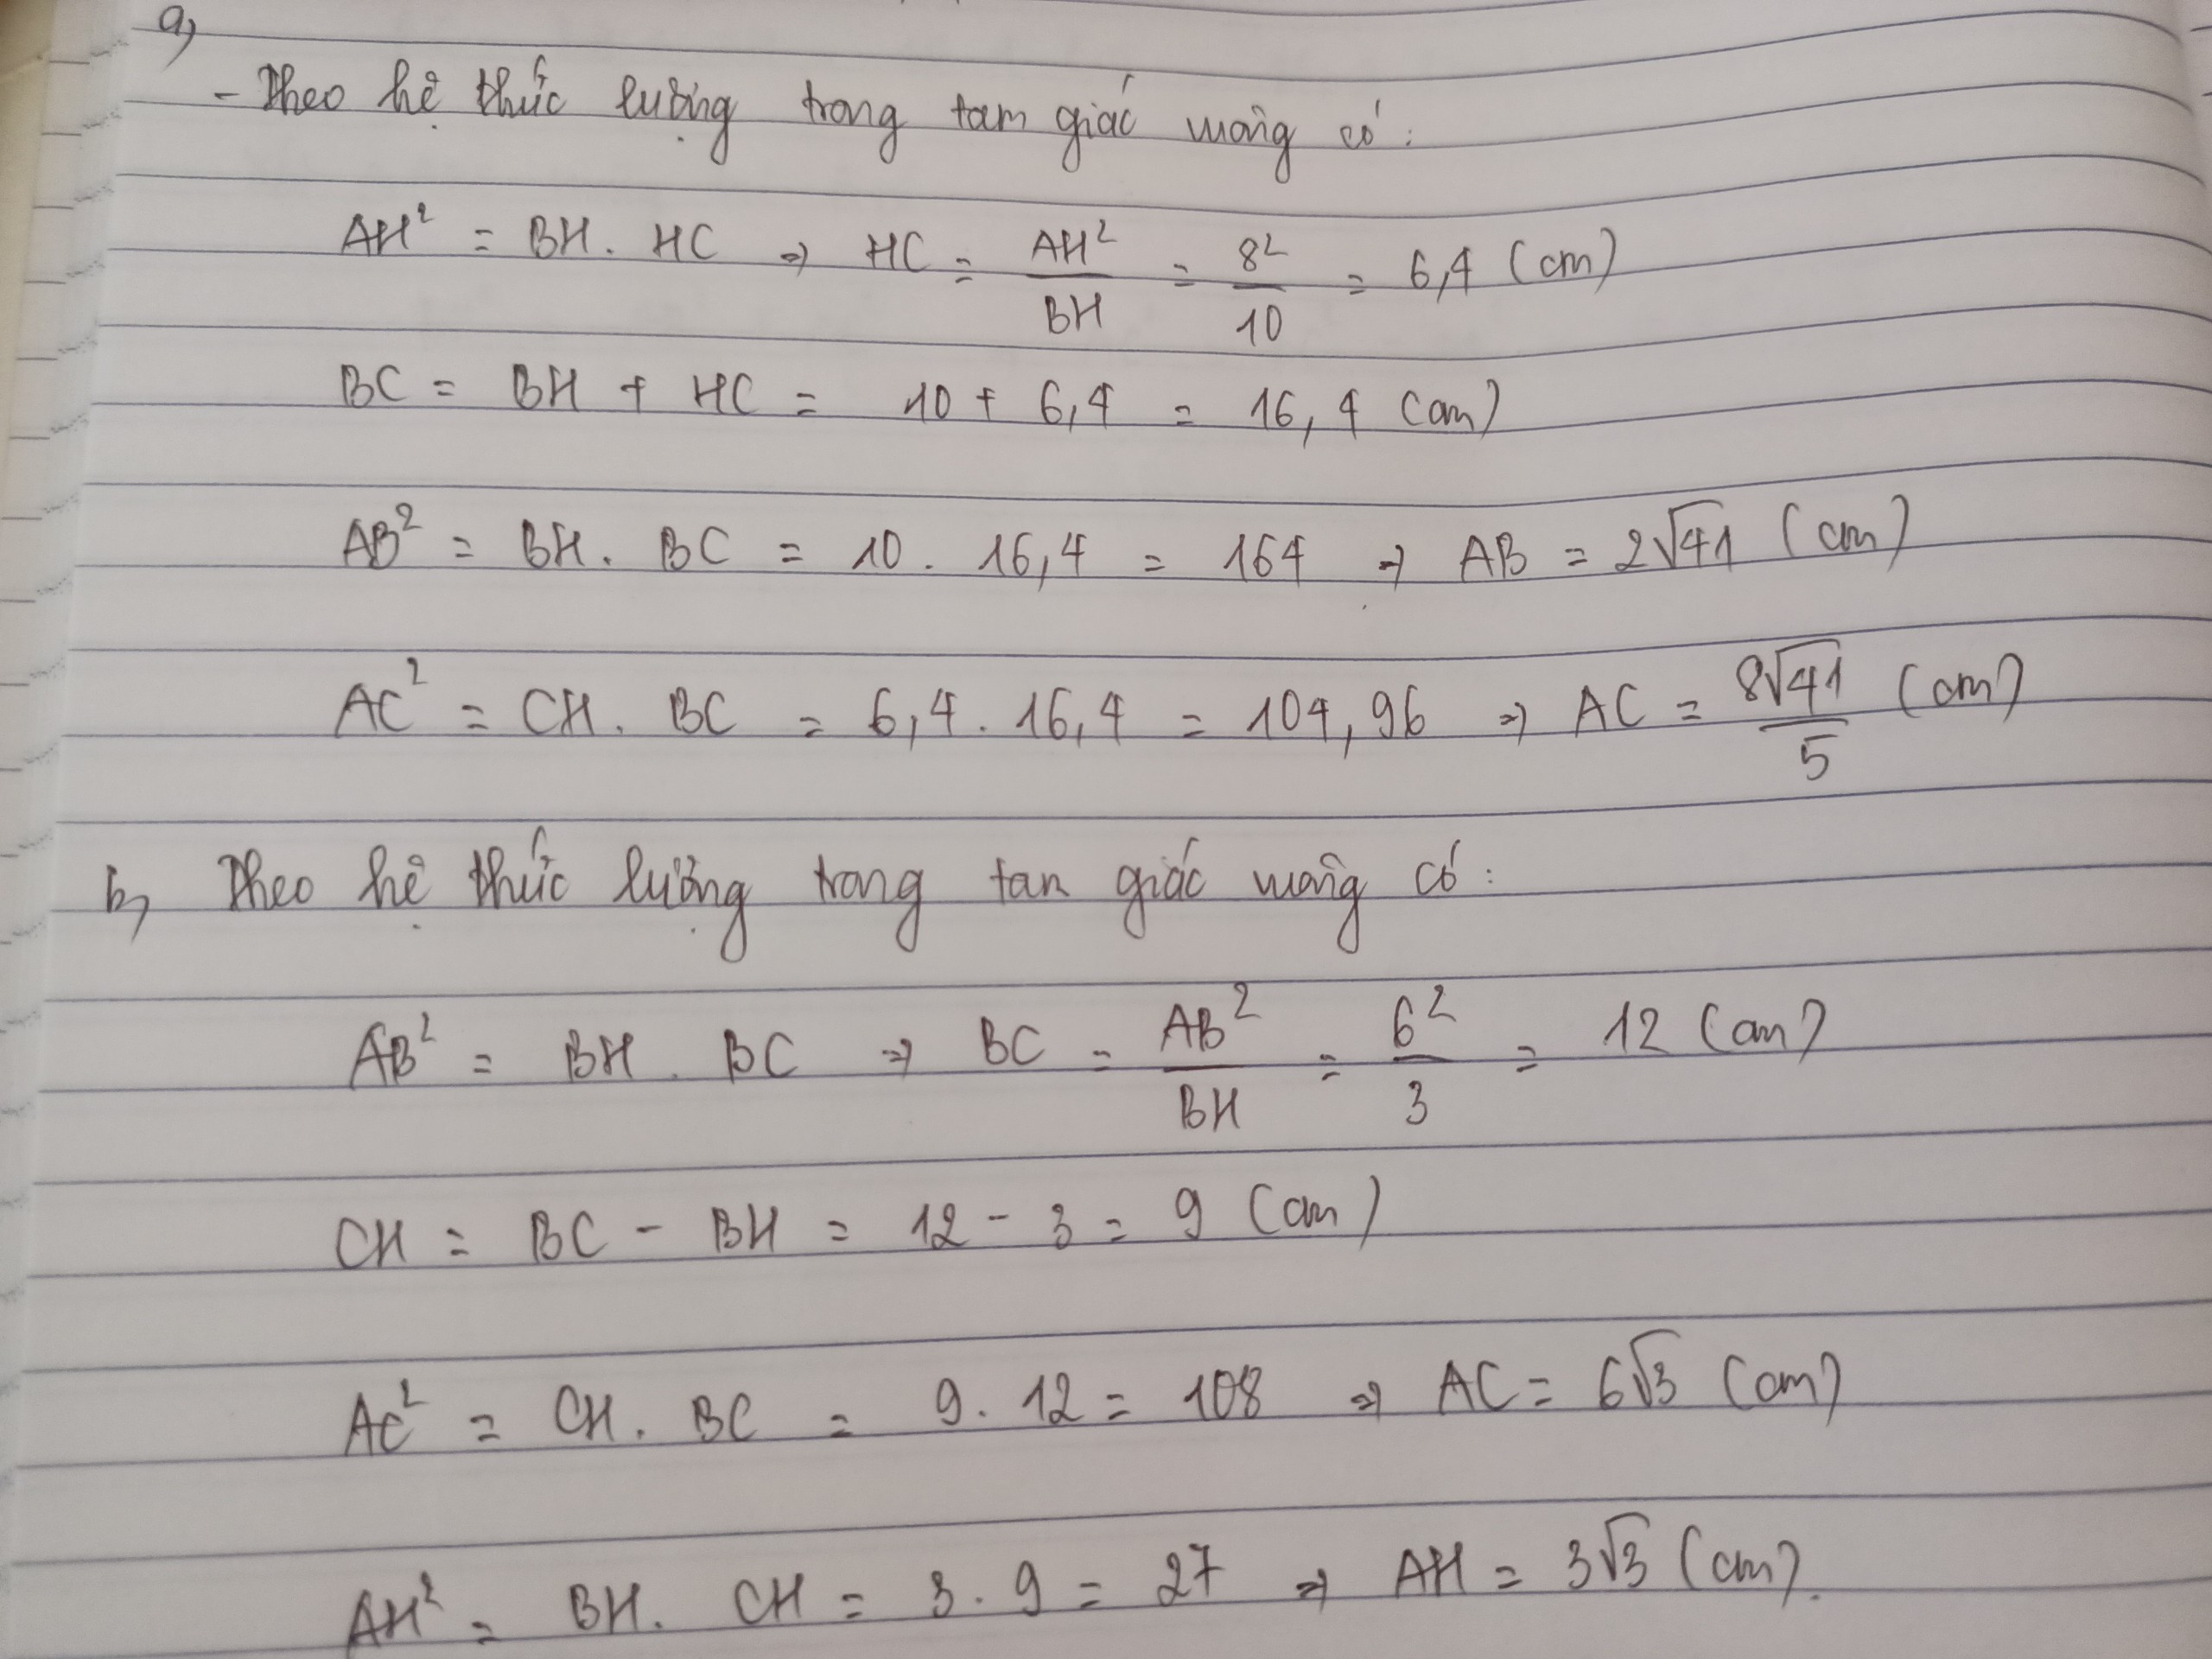 a,
- Theo hệ thức lượng trong tam giác vuông có:
AH² = BH. HC ⇒ HC = AH²/BH = 8²/10 = 6,4 (cm)
BC = BH + HC = 10 + 6,4 = 16,4 (cm)
AB² = BH. BC = 10. 16,4 = 164 ⇒ AB = 2√41 (cm)
AC² = CH. BC = 6,4. 16,4 = 104,96 ⇒ AC = 8√41/5 (cm)
b, Theo hệ thức lượng trong tan giác vuông có:
AB² = BH. BC ⇒ BC = AB²/BH = 6²/3 = 12 (cm)
CH = BC - BH = 12 - 3 = 9 (cm)
AC² = CH. BC = 9. 12 = 108 ⇒ AC = 6√3 (cm)
AH² = BH. CH = 3. 9 = 27 ⇒ AH = 3√3 (cm).